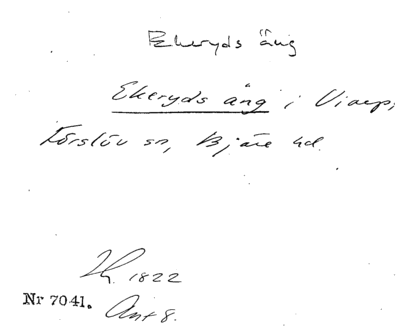 Ekeryds äng
Ekeryds äng i Viarp,
Förslöv sn, Bjäre hd.
Lh. 1822
Nr 7041. Ant 8.